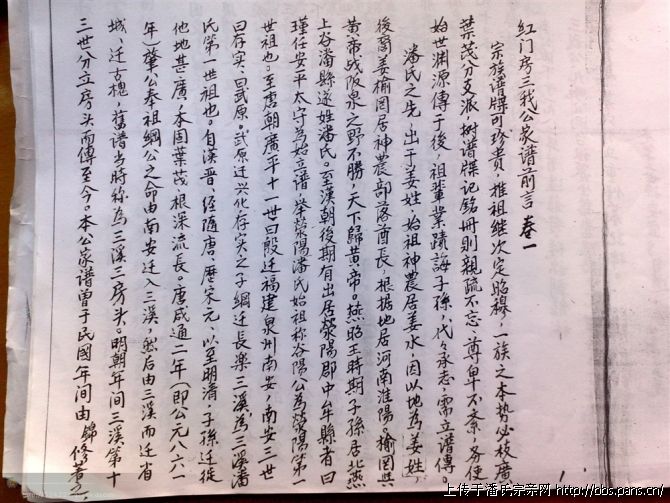 红门房三我公家谱前言 卷一
宗族谱牒可珍贵，推祖继次定昭穆，一族之本势必枝广
葉茂分支派，树谱牒记銘册则親疏不忘，尊卑不紊，务使
始世渊源傳于後，祖輩業蹟誨子孫，代々承志，需立譜傳。
潘氏之先，出于姜姓，始祖神農居姜水，因以地為姜姓，
後裔姜榆罔居神農部落酋長，根据地居河南淮陽，榆罔與
黄帝战阪泉之野不勝，天下歸黄帝。燕昭王時期子孫居北燕
上谷潘縣遂姓潘氏。至漢朝後期有出居滎陽郡中牟縣者曰
瑾任安平太守為始立譜，举滎陽潘氏始祖称谷陽公為滎陽第一
世祖也。至唐朝廣平十一世曰殷迁福建泉州南安，南安三世
曰存实，曰武原。武原迁兴化存实之子綱迁長楽三溪為三溪潘
氏第一世祖也。自漢晋、经隋唐、歷宋元、以至明清，子孫迁徙
他地甚廣，本固葉茂根深流長。唐咸通二年（即公元八六一
年）肇公奉祖綱公之命由南安迁入三溪，然后由三溪而迁省
城、迁古槐，舊谱当時称為三溪三房头。明朝年间三溪第十
三世分立房头而傳至今。本公家譜曾于民國年间由錦修著，
上传于潘氏宗亲网 http://bbs.pans.cn/